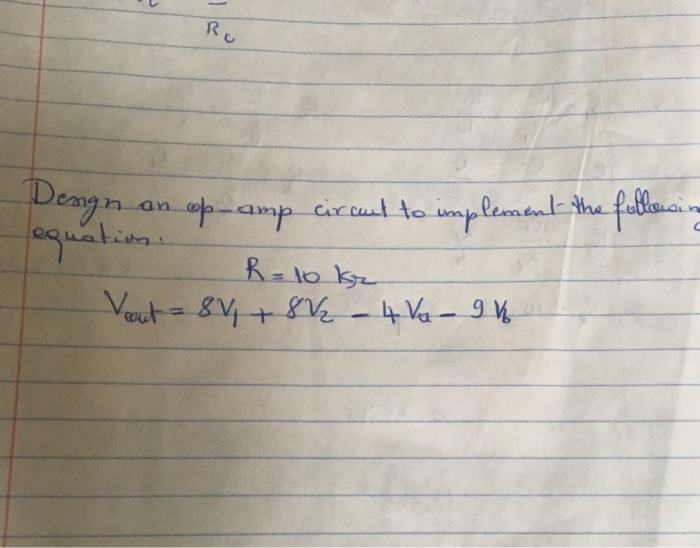 R_c
Design an op-amp circuit to implement the following
equation.
R = 10 kΩ
Vout = 8V₁ + 8V₂ - 4Va - 9Vb